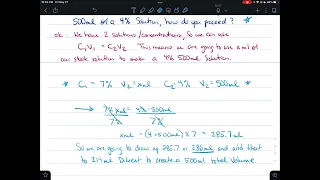 500ml of a 4% Solution, how do you proceed?
ok: We have 2 solutions/concentrations, So we can use
C₁V₁ = C₂V₂. This means we are going to use x ml of
our stock solution to make a 4% 500ml Solution.
* C₁ = 7% V₁ = xml C₂ = 4% V₂ = 500ml *
7% xml = 4% · 500ml
7% 7%
xml = (4 · 500ml) ÷ 7 = 285.7ml
So we are going to draw up 285.7 or 286ml and add that
to 214ml Diluent to create a 500ml total Volume.